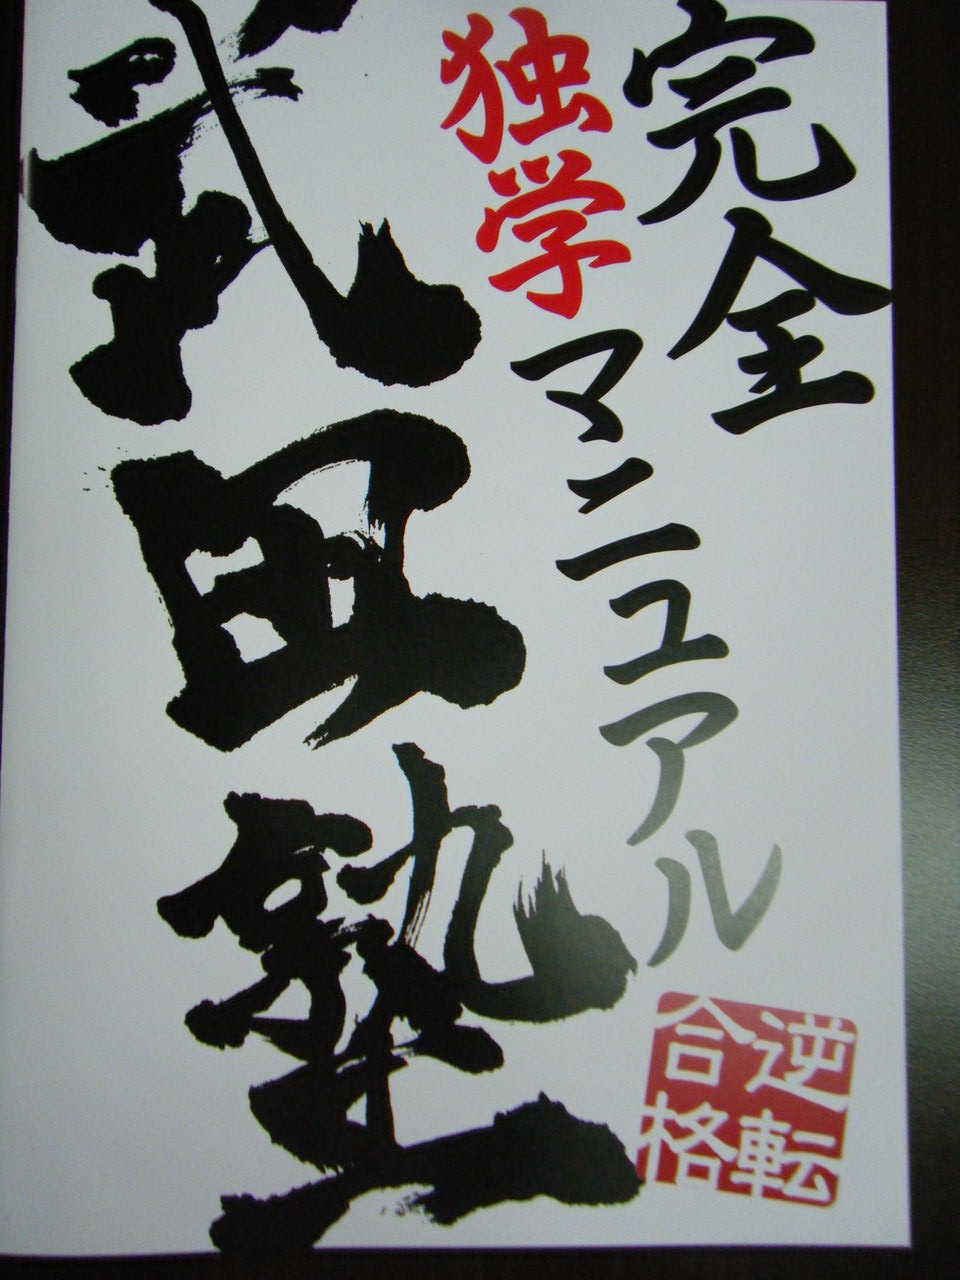 完全
独学マニュアル
武田塾
逆転
合格